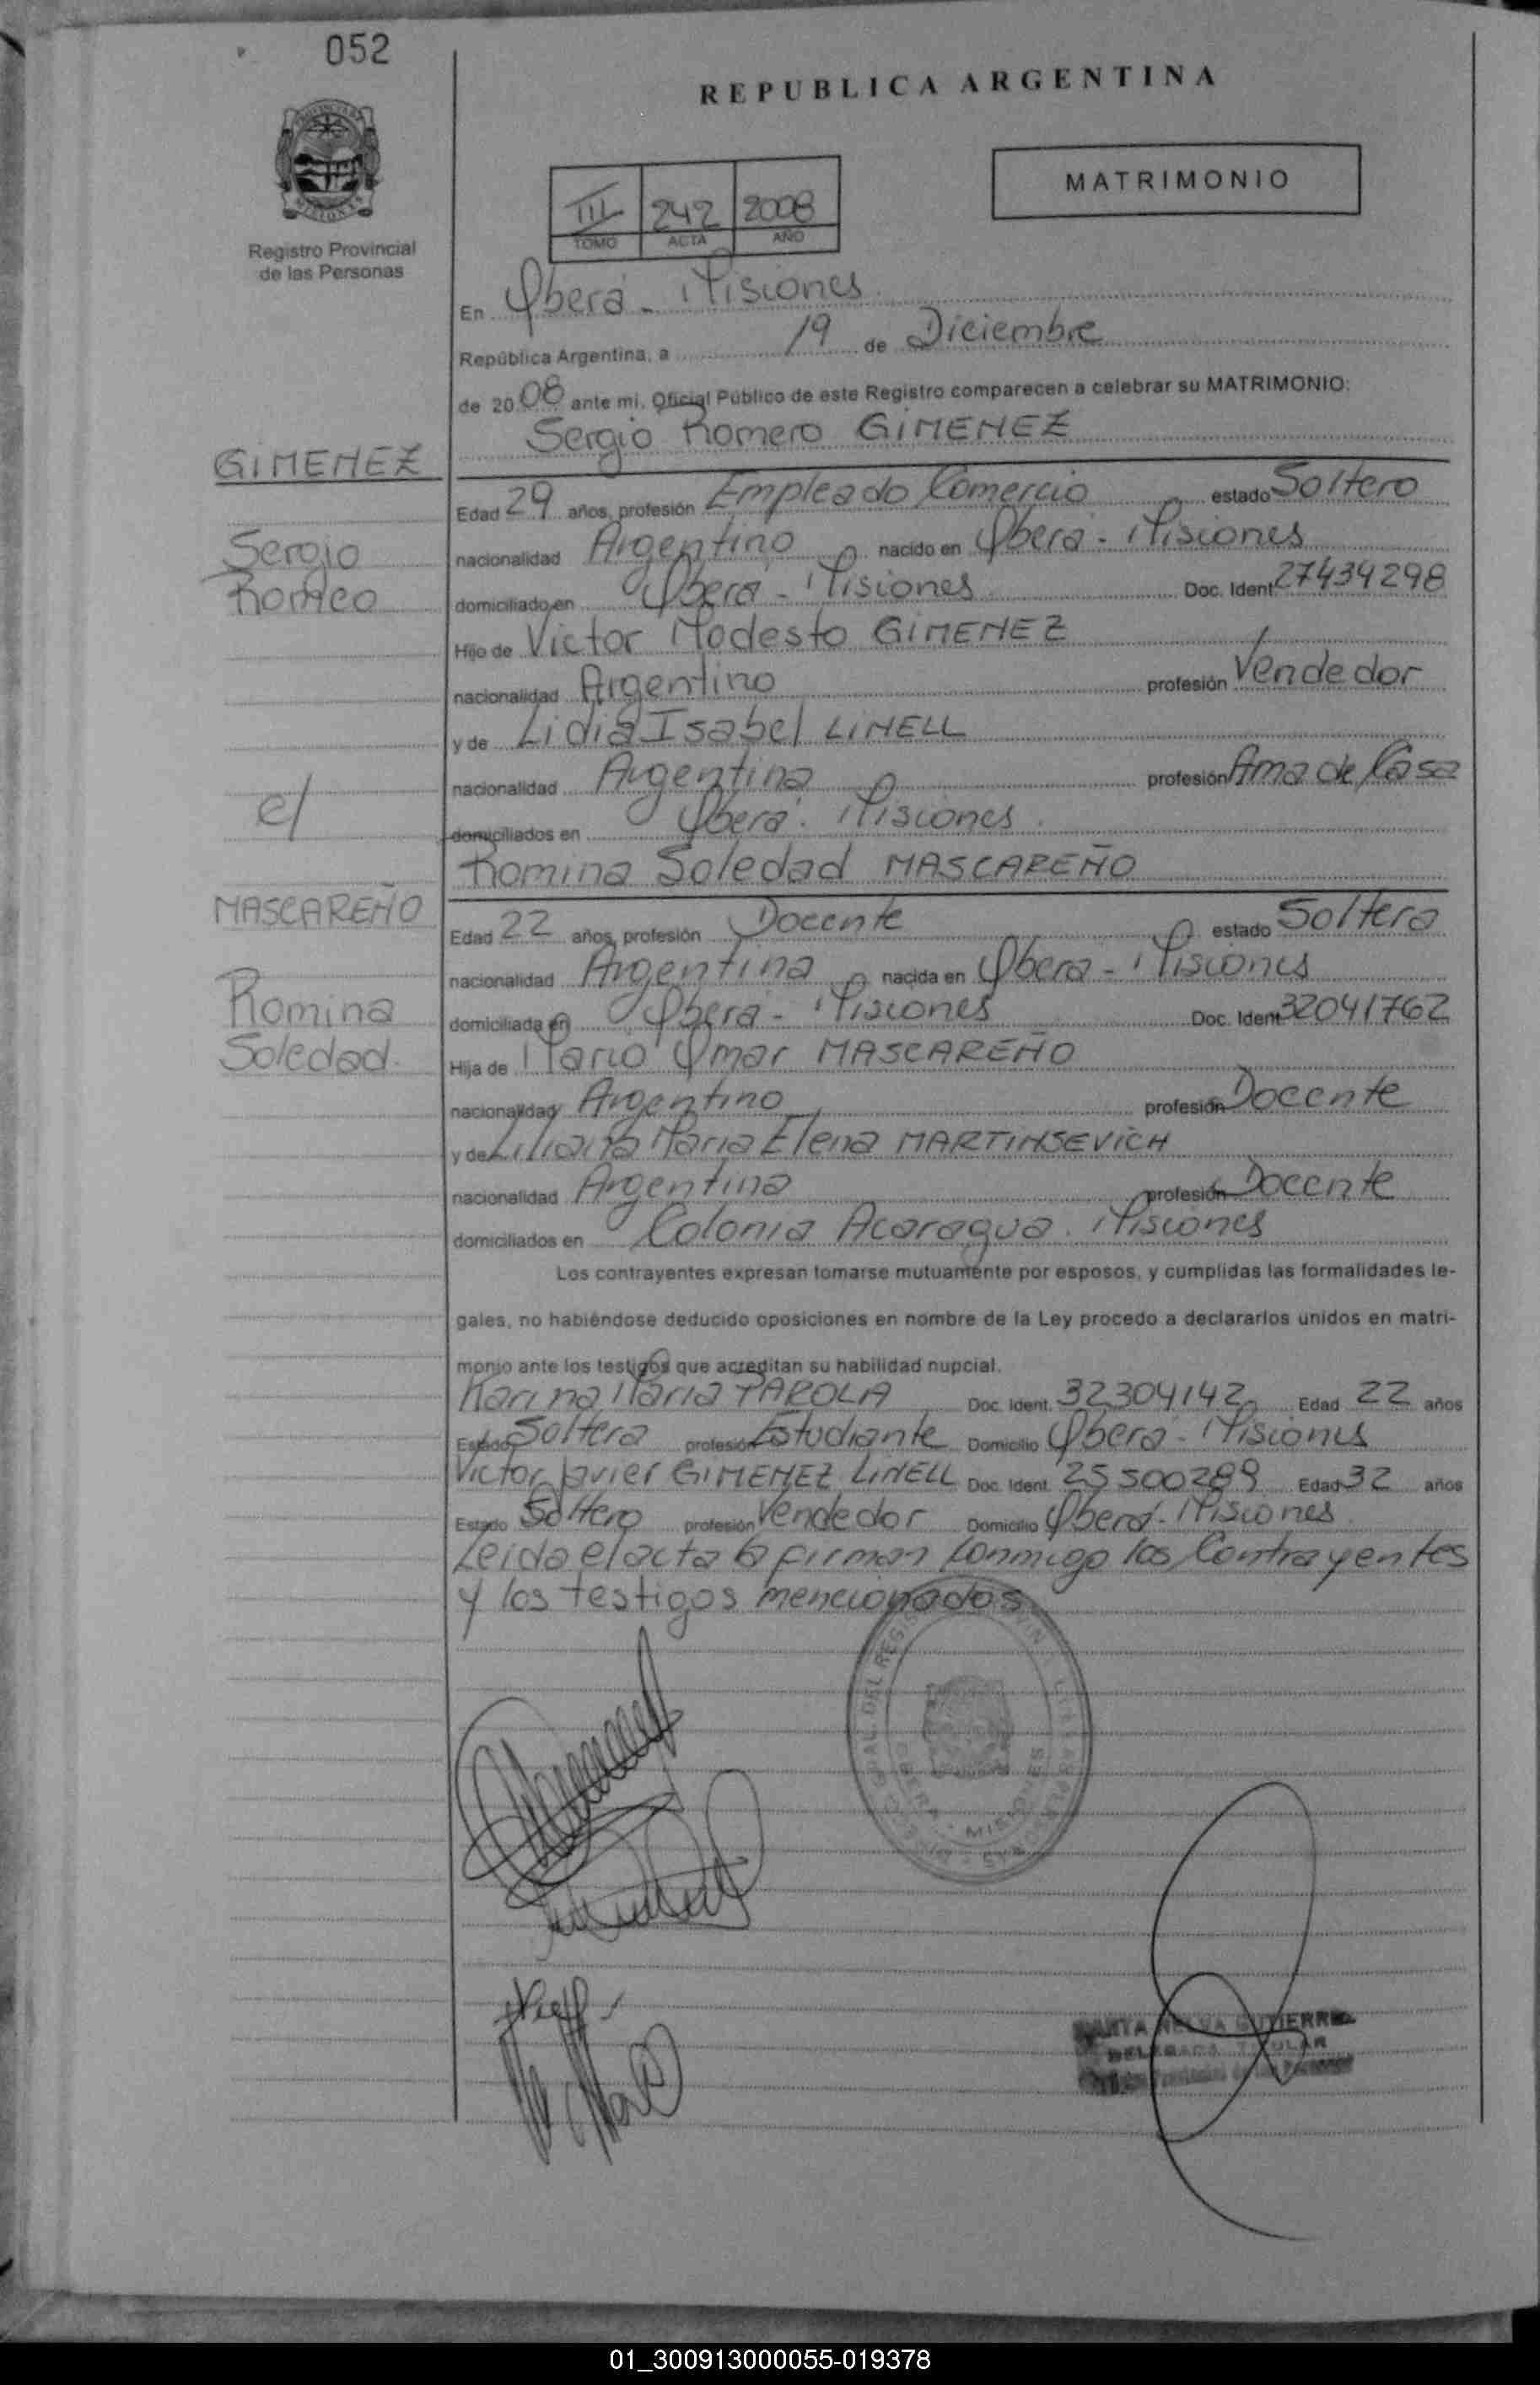 052
REPUBLICA ARGENTINA
MATRIMONIO
III 242 2008
TOMO ACTA AÑO
Registro Provincial
de las Personas
En Oberá - Misiones
República Argentina, a 19 de Diciembre
de 2008 ante mi, Oficial Público de este Registro comparecen a celebrar su MATRIMONIO:
Sergio Romero GIMENEZ
GIMENEZ
Edad 29 años, profesión Empleado Comercio estado Soltero
Sergio
nacionalidad Argentino nacido en Oberá - Misiones
Romeo
domiciliado en Oberá - Misiones Doc. Ident. 27434298
Hijo de Victor Modesto GIMENEZ
nacionalidad Argentino profesión Vendedor
y de Lidia Isabel LINELL
nacionalidad Argentina profesión Ama de Casa
c/
domiciliados en Oberá. Misiones.
Romina Soledad MASCAREÑO
MASCAREÑO
Edad 22 años, profesión Docente estado Soltera
nacionalidad Argentina nacida en Oberá - Misiones
Romina
domiciliada en Oberá - Misiones Doc. Ident. 32041762
Soledad.
Hija de Mario Omar MASCAREÑO
nacionalidad Argentino profesión Docente
y de Liliana Maria Elena MARTINSEVICH
nacionalidad Argentina profesión Docente
domiciliados en Colonia Acaragua. Misiones
Los contrayentes expresan tomarse mutuamente por esposos, y cumplidas las formalidades le-
gales, no habiéndose deducido oposiciones en nombre de la Ley procedo a declararlos unidos en matri-
monio ante los testigos que acreditan su habilidad nupcial.
Karina Maria PAROLA Doc. Ident. 32304142 Edad 22 años
Estado Soltera profesión Estudiante Domicilio Oberá - Misiones
Victor Javier GIMENEZ LINELL Doc. Ident. 25500289 Edad 32 años
Estado Soltero profesión Vendedor Domicilio Oberá - Misiones.
Leida el acta la firman conmigo los Contrayentes
y los testigos mencionados
OBERA - MISIONES
GUTIERREZ
DELEGADA TITULAR
01_300913000055-019378